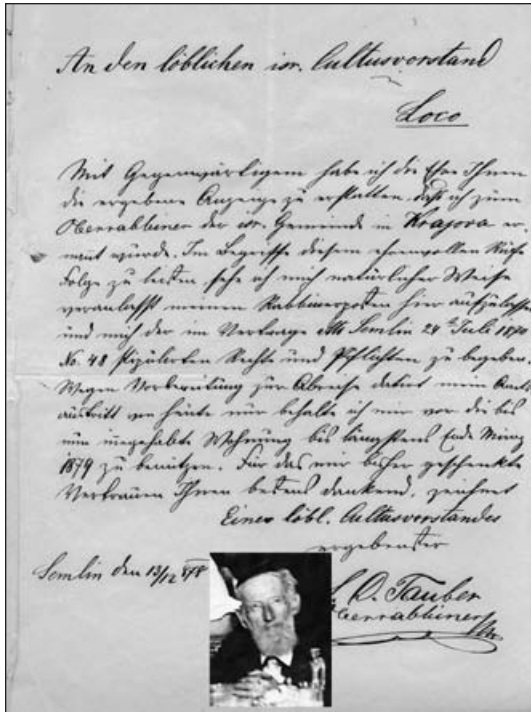 An den löblichen isr. Cultusvorstand
Loco
Mit Gegenwärtigem habe ich die Ehre Ihnen
die ergebene Anzeige zu erstatten, daß ich zum
Oberrabbiner der isr. Gemeinde in Krajova er-
nannt wurde. Im Begriffe diesem ehrenvollen Rufe
Folge zu leisten, sehe ich mich natürlicher Weise
veranlasst meinen Rabbinerposten hier aufzulassen
und mich der im Vertrage dto Semlin 24t Juli 1870
No. 48 stipulirten Rechte und Pflichten zu begeben.
Wegen Vorbereitung zur Abreise datirt mein Amts
austritt von heute nur behalte ich mir vor die bis
nun innegehabte Wohnung bis längstens Ende März
1879 zu benützen. Für das mir bisher geschenkte
Vertrauen Ihnen bestens dankend, zeichnet
Eines löbl. Cultusvorstandes
ergebenster
Semlin den 13/12 878
Tauber
Oberrabbiner